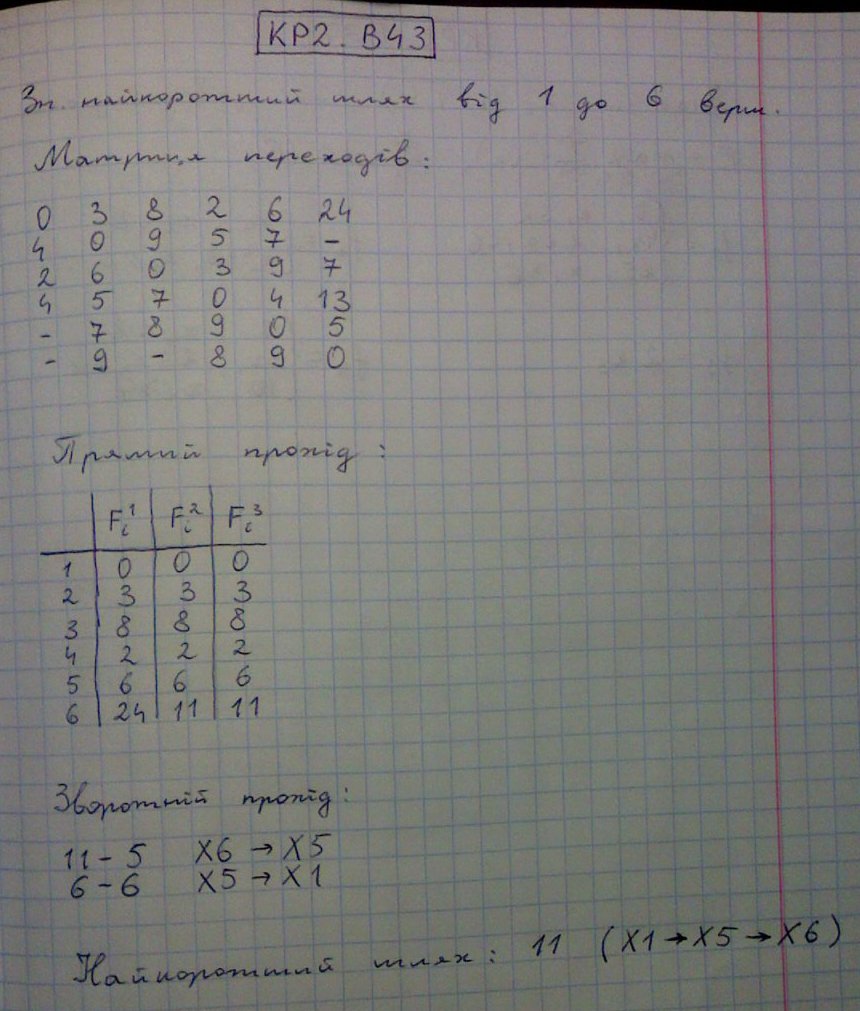 КР2. В43
Зн. найкоротший шлях від 1 до 6 верш.
Матриця переходів:
0 3 8 2 6 24
4 0 9 5 7 -
2 6 0 3 9 7
4 5 7 0 4 13
- 7 8 9 0 5
- 9 - 8 9 0
Прямий прохід:
Fi^1 Fi^2 Fi^3
1 0 0 0
2 3 3 3
3 8 8 8
4 2 2 2
5 6 6 6
6 24 11 11
Зворотній прохід:
11 - 5 X6 → X5
6 - 6 X5 → X1
Найкоротший шлях: 11 (X1 → X5 → X6)